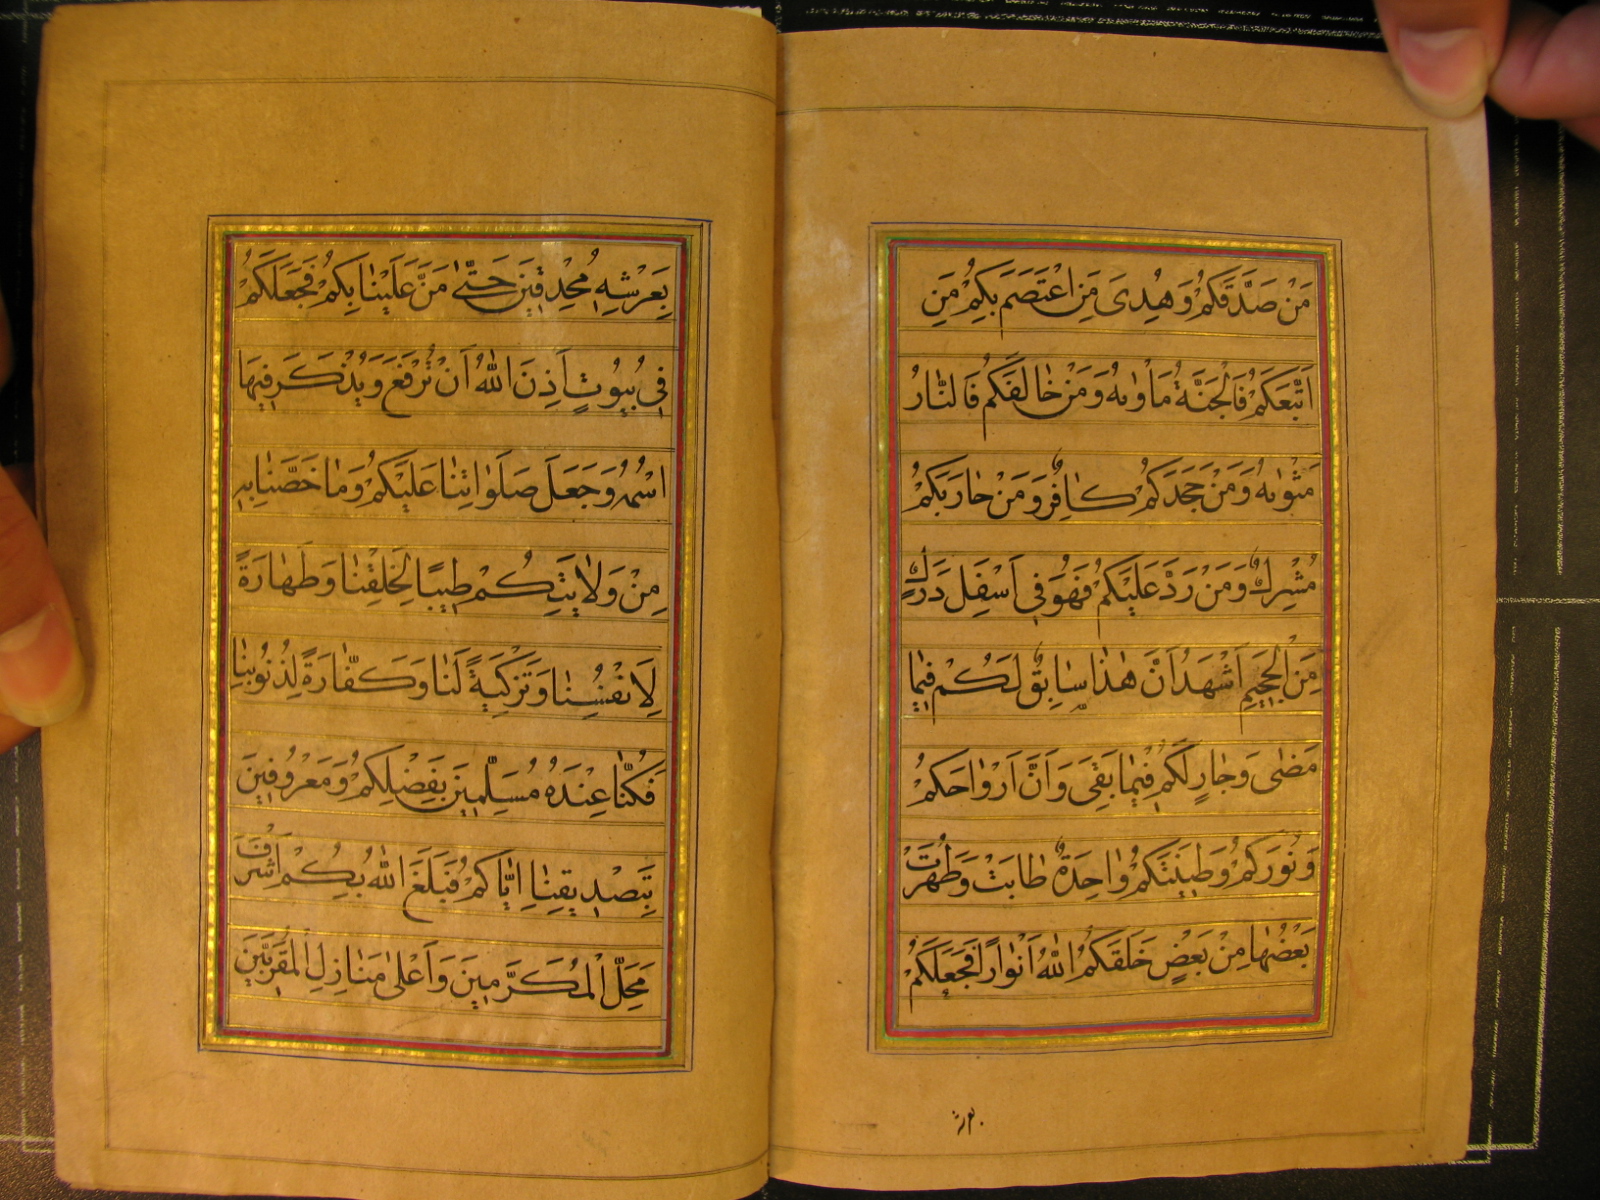 مَنْ صَدَّقَكُمْ وَهُدِىَ مَنِ اعْتَصَمَ بِكُمْ مَنِ
اتَّبَعَكُمْ فَالْجَنَّةُ مَاْوٰيهُ وَمَنْ خٰالَفَكُمْ فَالنّٰارُ
مَثْوٰيهُ وَمَنْ جَحَدَكُمْ كٰافِرٌ وَمَنْ حٰارَبَكُمْ
مُشْرِكٌ وَمَنْ رَدَّ عَلَيْكُمْ فَهُوَ فِي اَسْفَلِ دَرَكٍ
مِنَ الْجَحِيمِ اَشْهَدُ اَنَّ هٰذٰا سٰابِقٌ لَكُمْ فِيمٰا
مَضٰى وَجٰارٍ لَكُمْ فِيمٰا بَقِىَ وَاَنَّ اَرْوٰاحَكُمْ
وَنُورَكُمْ وَطِينَتَكُمْ وٰاحِدَةٌ طٰابَتْ وَطَهُرَتْ
بَعْضُهٰا مِنْ بَعْضٍ خَلَقَكُمُ اللّٰهُ اَنْوٰارًا فَجَعَلَكُمْ
بِعَرْشِهِ مُحْدِقِينَ حَتّٰى مَنَّ عَلَيْنٰا بِكُمْ فَجَعَلَكُمْ
فِي بُيُوتٍ اَذِنَ اللّٰهُ اَنْ تُرْفَعَ وَيُذْكَرَ فِيهَا
اسْمُهُ وَجَعَلَ صَلَوٰاتِنٰا عَلَيْكُمْ وَمٰا خَصَّنٰا بِهِ
مِنْ وَلٰايَتِكُمْ طِيبًا لِخَلْقِنٰا وَطَهٰارَةً
لِاَنْفُسِنٰا وَتَزْكِيَةً لَنٰا وَكَفّٰارَةً لِذُنُوبِنٰا
فَكُنّٰا عِنْدَهُ مُسَلِّمِينَ بِفَضْلِكُمْ وَمَعْرُوفِينَ
بِتَصْدِيقِنٰا اِيّٰاكُمْ فَبَلَغَ اللّٰهُ بِكُمْ اَشْرَفَ
مَحَلِّ الْمُكَرَّمِينَ وَاَعْلٰى مَنٰازِلِ الْمُقَرَّبِينَ